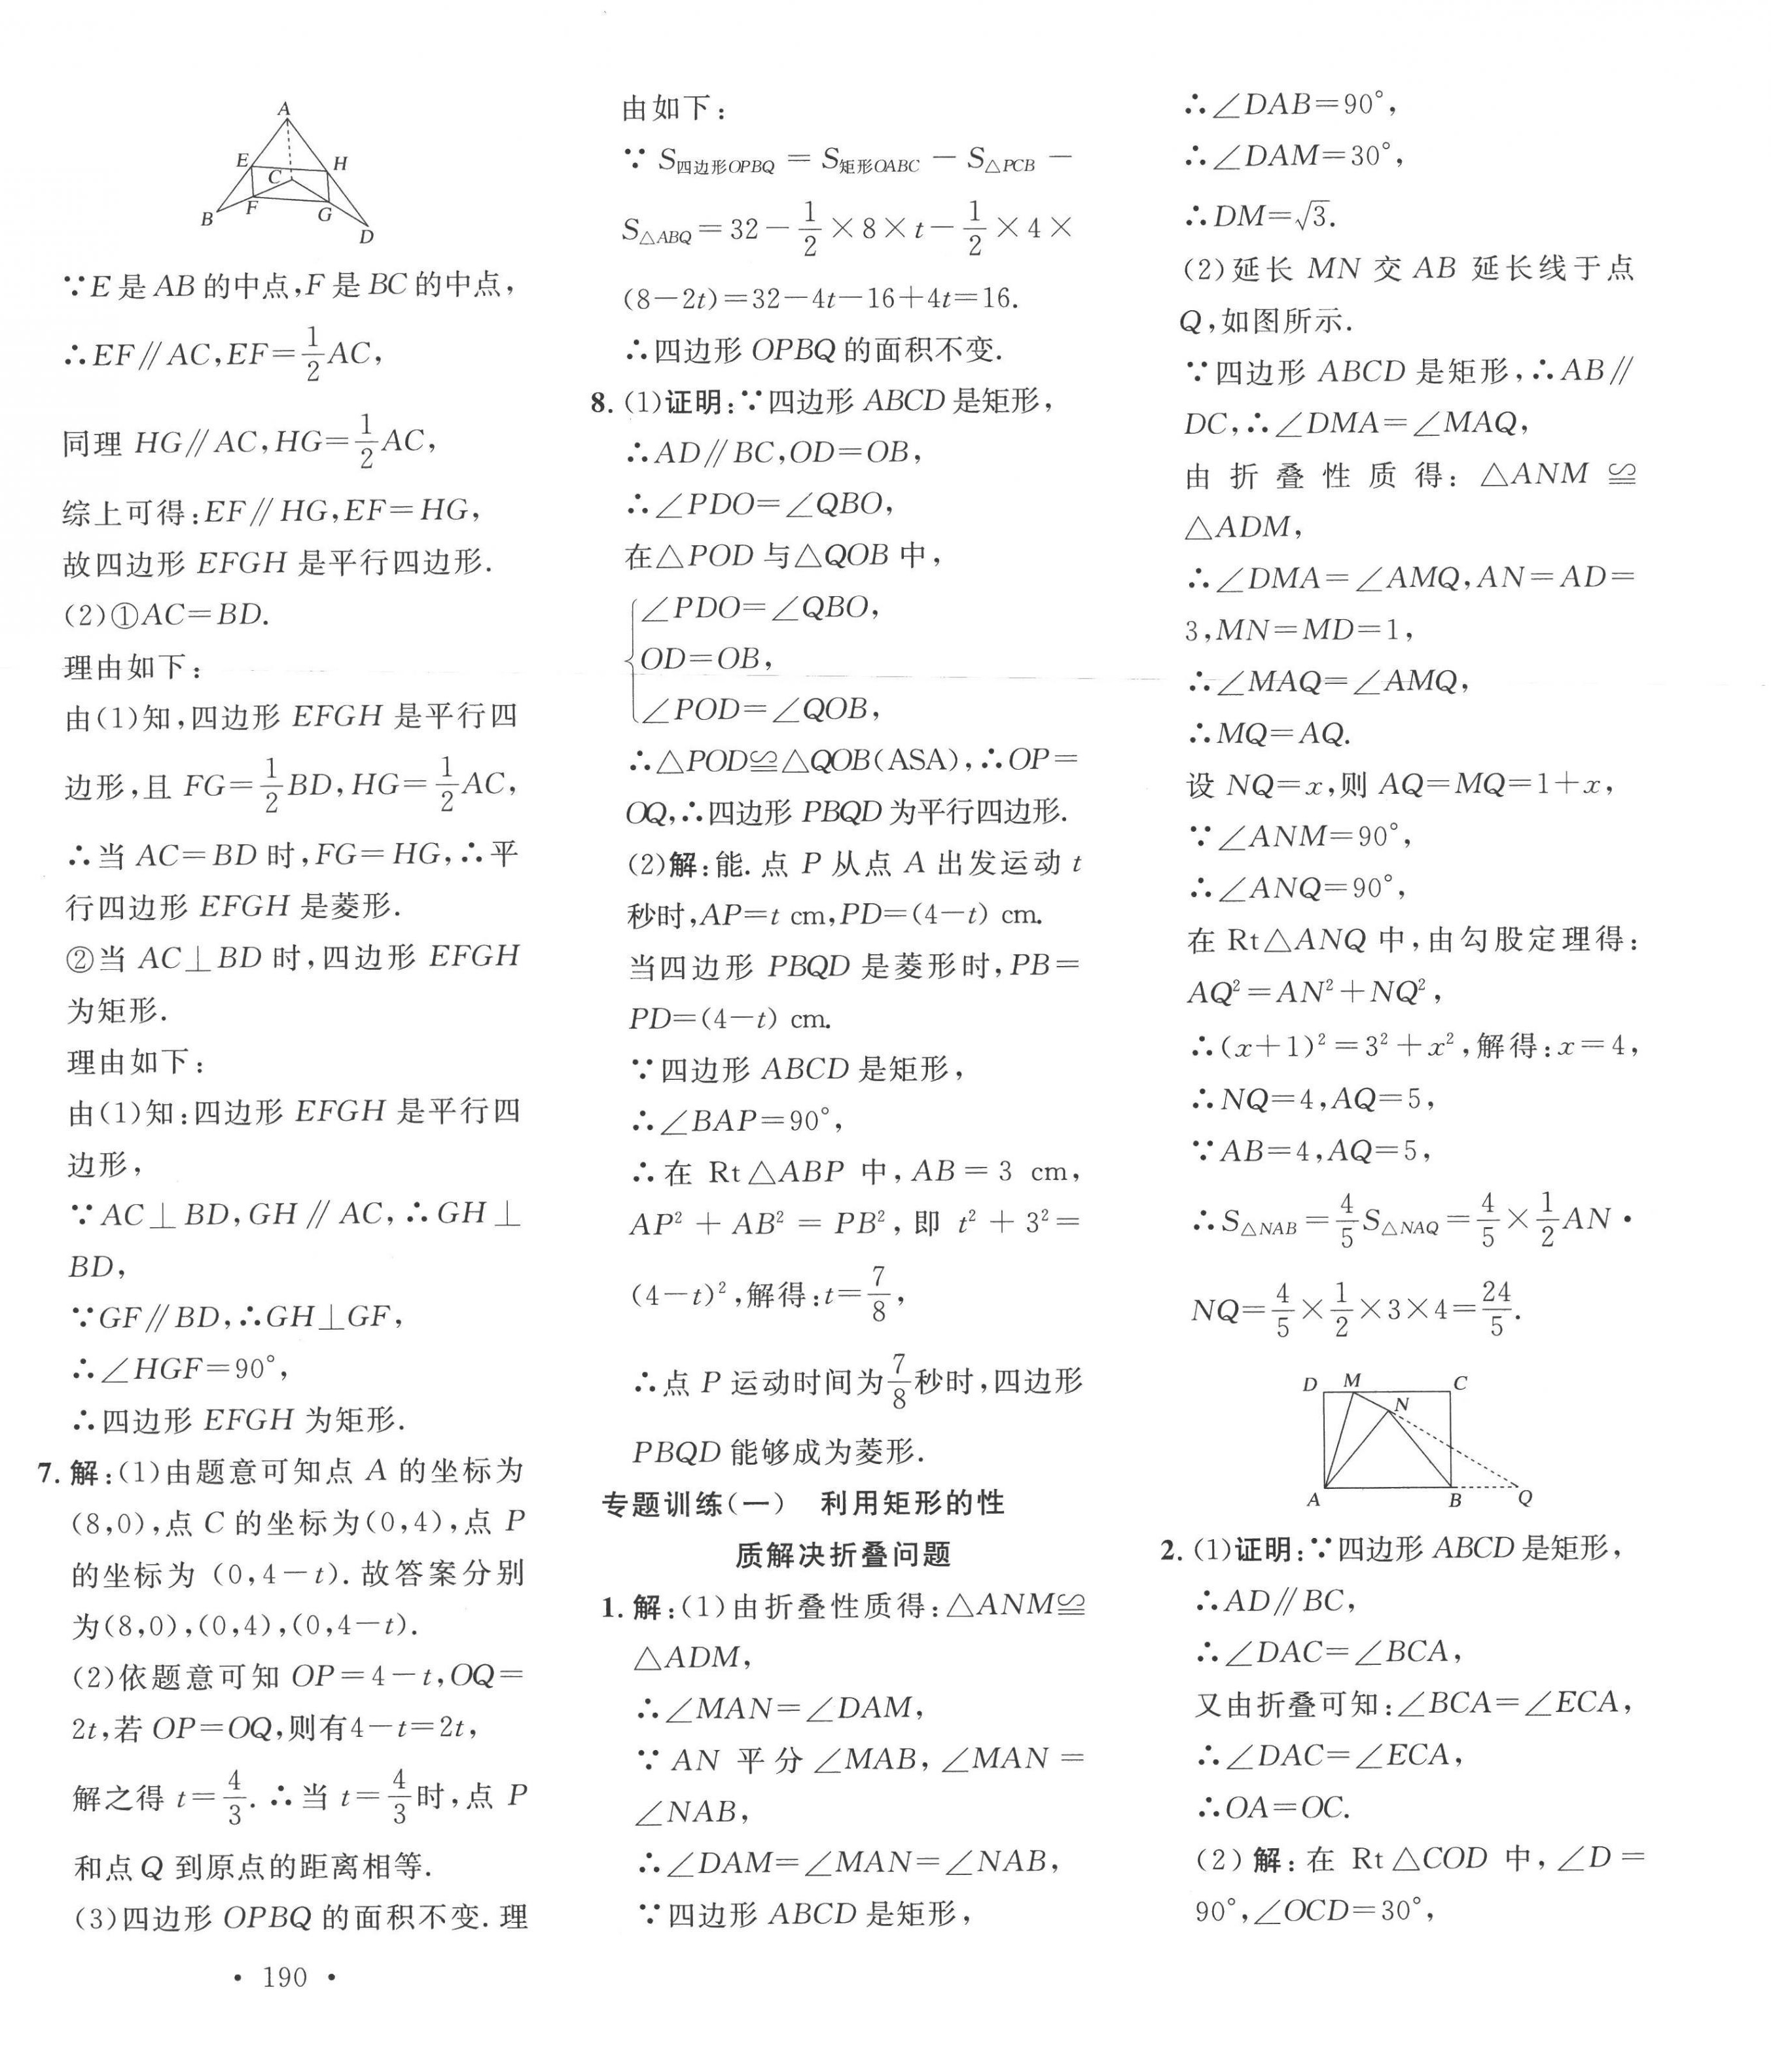 A
E
H
C
B
F
G
D
∵E是AB的中点,F是BC的中点,
∴EF∥AC,EF=1/2AC,
同理 HG∥AC,HG=1/2AC,
综上可得:EF∥HG,EF=HG,
故四边形 EFGH 是平行四边形.
(2)①AC=BD.
理由如下:
由(1)知,四边形 EFGH 是平行四
边形,且 FG=1/2BD,HG=1/2AC,
∴当 AC=BD 时,FG=HG,∴平
行四边形 EFGH 是菱形.
②当 AC⊥BD 时,四边形 EFGH
为矩形.
理由如下:
由(1)知:四边形 EFGH 是平行四
边形,
∵AC⊥BD,GH∥AC,∴GH⊥
BD,
∵GF∥BD,∴GH⊥GF,
∴∠HGF=90°,
∴四边形 EFGH 为矩形.
7. 解:(1)由题意可知点 A 的坐标为
(8,0),点 C 的坐标为(0,4),点 P
的坐标为 (0,4-t). 故答案分别
为(8,0),(0,4),(0,4-t).
(2)依题意可知 OP=4-t,OQ=
2t,若 OP=OQ,则有4-t=2t,
解之得 t=4/3. ∴当 t=4/3时,点 P
和点 Q 到原点的距离相等.
(3)四边形 OPBQ 的面积不变. 理
· 190 ·
由如下:
∵ S四边形OPBQ = S矩形OABC - S△PCB -
S△ABQ=32-1/2×8×t-1/2×4×
(8-2t)=32-4t-16+4t=16.
∴四边形 OPBQ 的面积不变.
8. (1)证明:∵四边形 ABCD 是矩形,
∴AD∥BC,OD=OB,
∴∠PDO=∠QBO,
在△POD 与△QOB 中,
∠PDO=∠QBO,
OD=OB,
∠POD=∠QOB,
∴△POD≌△QOB(ASA),∴OP=
OQ,∴四边形 PBQD 为平行四边形.
(2)解:能. 点 P 从点 A 出发运动 t
秒时,AP=t cm,PD=(4-t) cm.
当四边形 PBQD 是菱形时,PB=
PD=(4-t) cm.
∵四边形 ABCD 是矩形,
∴∠BAP=90°,
∴在 Rt△ABP 中,AB=3 cm,
AP²+AB²=PB²,即 t²+3²=
(4-t)²,解得:t=7/8,
∴点 P 运动时间为7/8秒时,四边形
PBQD 能够成为菱形.
专题训练(一) 利用矩形的性
质解决折叠问题
1. 解:(1)由折叠性质得:△ANM≌
△ADM,
∴∠MAN=∠DAM,
∵AN 平分∠MAB,∠MAN=
∠NAB,
∴∠DAM=∠MAN=∠NAB,
∵四边形 ABCD 是矩形,
∴∠DAB=90°,
∴∠DAM=30°,
∴DM=√3.
(2)延长 MN 交 AB 延长线于点
Q,如图所示.
∵四边形 ABCD 是矩形,∴AB∥
DC,∴∠DMA=∠MAQ,
由折叠性质得:△ANM≌
△ADM,
∴∠DMA=∠AMQ,AN=AD=
3,MN=MD=1,
∴∠MAQ=∠AMQ,
∴MQ=AQ.
设 NQ=x,则 AQ=MQ=1+x,
∵∠ANM=90°,
∴∠ANQ=90°,
在 Rt△ANQ 中,由勾股定理得:
AQ²=AN²+NQ²,
∴(x+1)²=3²+x²,解得:x=4,
∴NQ=4,AQ=5,
∵AB=4,AQ=5,
∴S△NAB=4/5S△NAQ=4/5×1/2AN·
NQ=4/5×1/2×3×4=24/5.
D M C
N
A B Q
2. (1)证明:∵四边形 ABCD 是矩形,
∴AD∥BC,
∴∠DAC=∠BCA,
又由折叠可知:∠BCA=∠ECA,
∴∠DAC=∠ECA,
∴OA=OC.
(2)解:在 Rt△COD 中,∠D=
90°,∠OCD=30°,